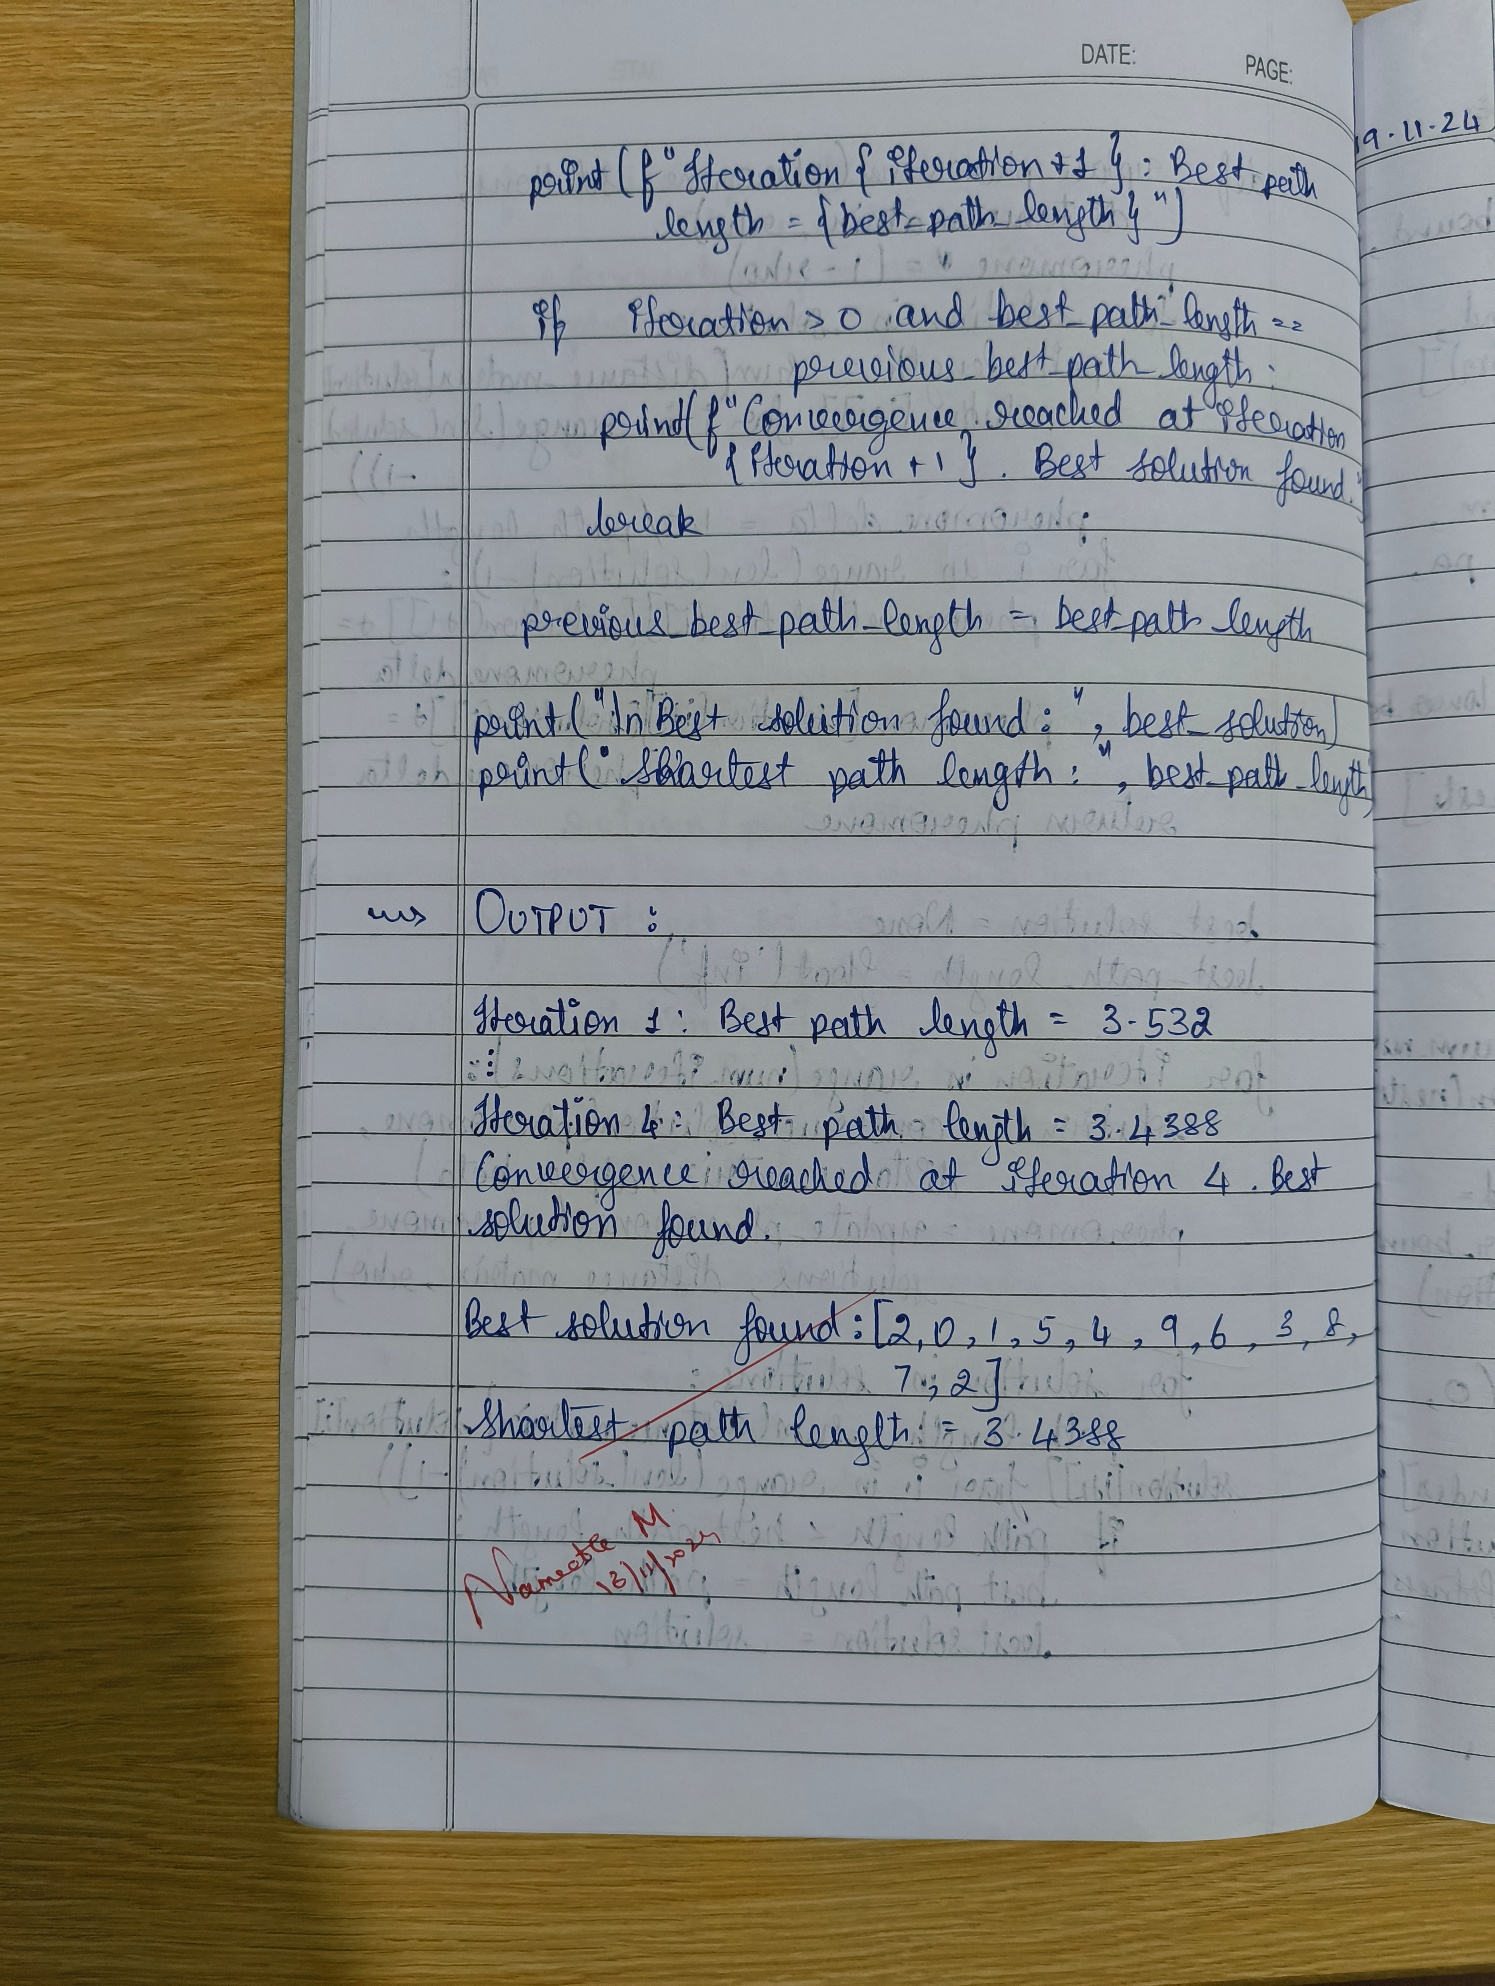 DATE:
PAGE:
19.11.24
print(f"Iteration {iteration+1}: Best path
length = {best_path_length}")
if iteration > 0 and best_path_length ==
previous_best_path_length:
print(f"Convergence reached at iteration
{iteration+1}. Best solution found."
break
previous_best_path_length = best_path_length
print("\n Best solution found:", best_solution)
print("Shortest path length:", best_path_length)
OUTPUT:
Iteration 1: Best path length = 3.532
⋮
Iteration 4: Best path length = 3.4388
Convergence reached at iteration 4. Best
solution found.
Best solution found: [2, 0, 1, 5, 4, 9, 6, 3, 8,
7, 2]
Shortest path length = 3.4388
M
13/11/2024